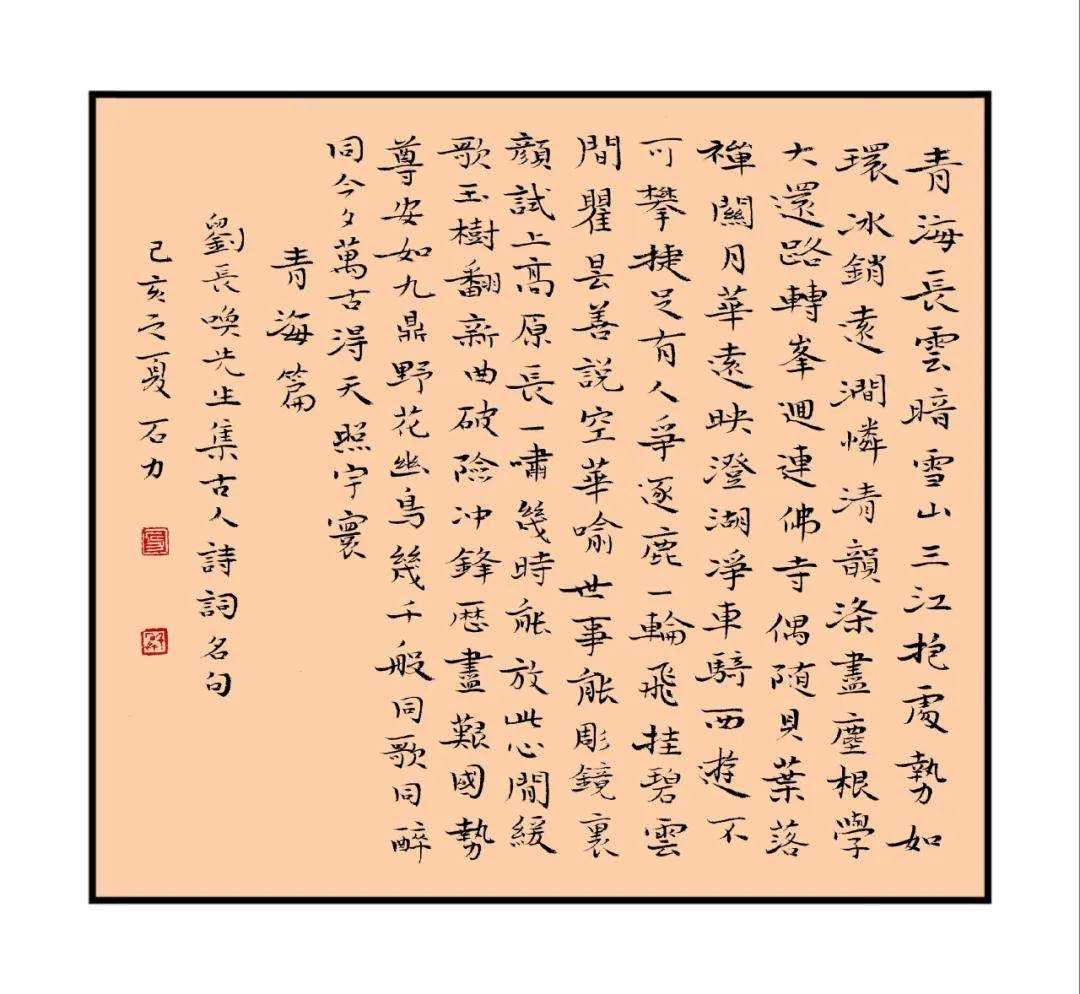 青海長雲暗雪山三江抱處勢如
環冰銷遠澗憐清韻滌盡塵根學
大還路轉峯迴連佛寺偶隨貝葉落
禪關月華遠映澄湖淨車騎西遊不
可攀捷足有人爭逐鹿一輪飛挂碧雲
間瞿曇善説空華喻世事能彫鏡裏
顔試上高原長一嘯幾時能放此心閒緩
歌玉樹翻新曲破險冲鋒歷盡艱國勢
尊安如九鼎野花幽鳥幾千般同歌同醉
同今夕萬古得天照宇寰
青海篇
劉長喚先生集古人詩詞名句
己亥之夏石力